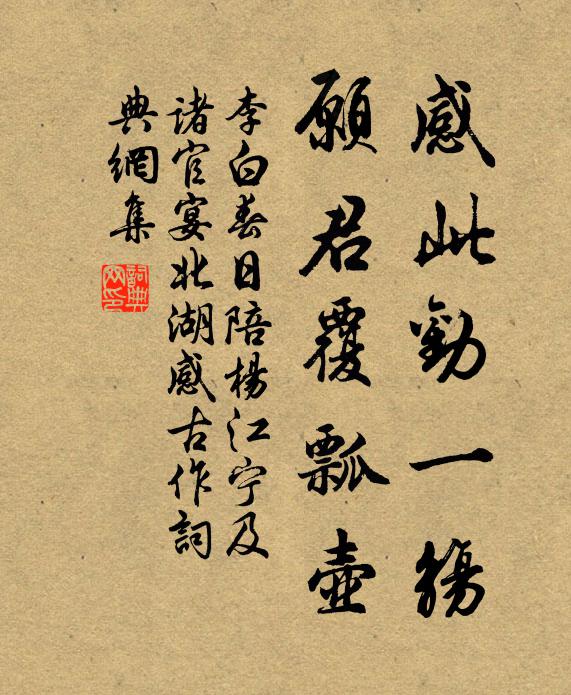 感此勸一觴
願君覆瓢壺
李白春日陪楊江宁及
諸官宴北湖感古作詞
典網集
詞典網印